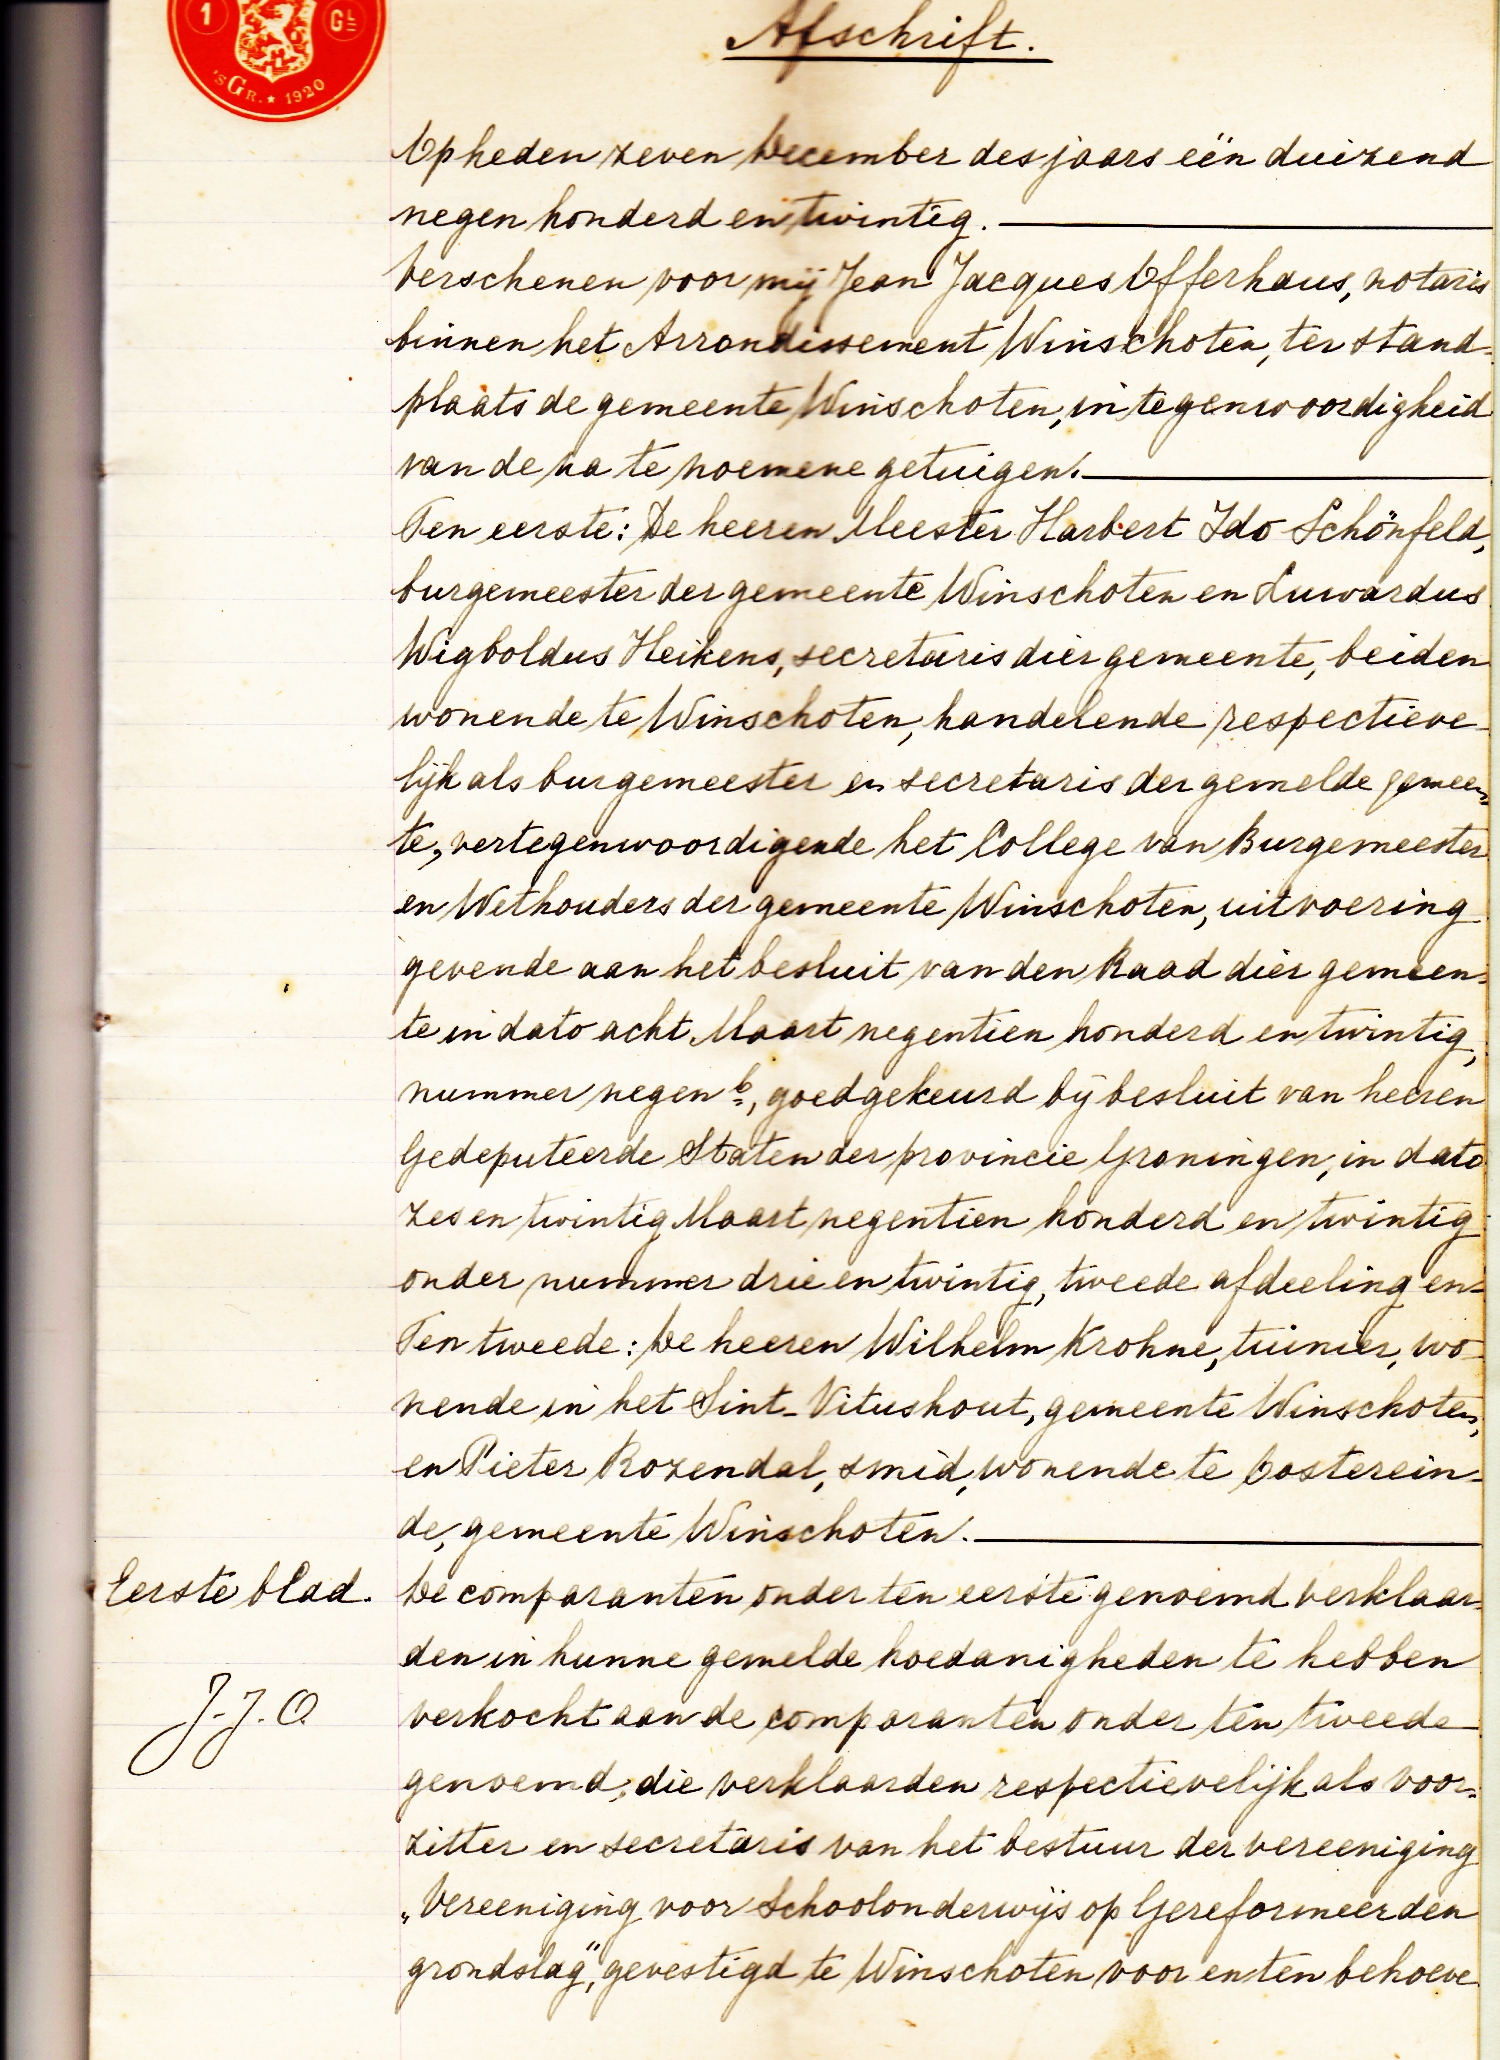 1 GL
'sGr. ★ 1920
Afschrift.
Op heden zeven December des jaars één duizend
negen honderd en twintig.
Verschenen voor mij Jean Jacques Offerhaus, notaris
binnen het Arrondissement Winschoten, ter stand-
plaats de gemeente Winschoten, in tegenwoordigheid
van de na te noemene getuigen.
Ten eerste: De heeren Meester Harbert Ido Schönfeld,
burgemeester der gemeente Winschoten en Luwardus
Wigboldus Heikens, secretaris dier gemeente, beiden
wonende te Winschoten, handelende respectieve-
lijk als burgemeester en secretaris der gemelde gemeen-
te, vertegenwoordigende het College van Burgemeester
en Wethouders der gemeente Winschoten, uitvoering
gevende aan het besluit van den Raad dier gemeen-
te in dato acht Maart negentien honderd en twintig,
nummer negen b, goedgekeurd bij besluit van heeren
Gedeputeerde Staten der provincie Groningen, in dato
zes en twintig Maart negentien honderd en twintig
onder nummer drie en twintig, tweede afdeeling en-
Ten tweede: De heeren Wilhelm Krohne, tuinier, wo-
nende in het Sint-Vitusholt, gemeente Winschoten,
en Pieter Rozendal, smid, wonende te Oosterein-
de, gemeente Winschoten.
Eerste blad.
De comparanten onder ten eerste genoemd verklaar-
den in hunne gemelde hoedanigheden te hebben
J.J.O.
verkocht aan de comparanten onder ten tweede
genoemd, die verklaarden respectievelijk als voor-
zitter en secretaris van het bestuur der vereeniging
„Vereeniging voor Schoolonderwijs op Gereformeerden
grondslag", gevestigd te Winschoten voor en ten behoeve